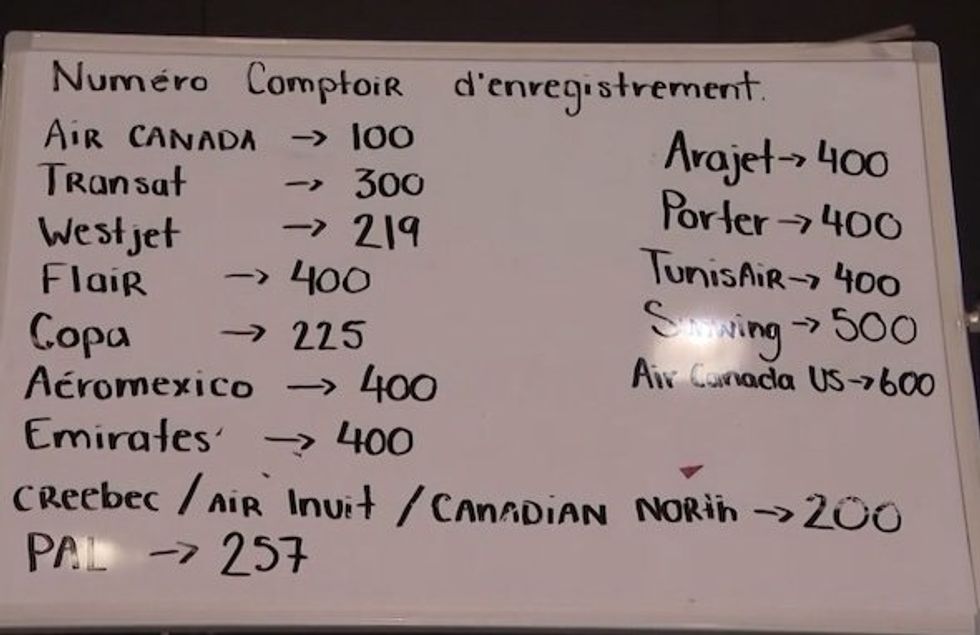 Numéro Comptoir d'enregistrement.
AiR CANADA → 100
Transat → 300
Westjet → 219
Flair → 400
Copa → 225
Aéromexico → 400
Emirates → 400
CReebec / AiR Inuit / CANADIAN NORth → 200
PAL → 257
Arajet → 400
Porter → 400
TunisAiR → 400
Sunwing → 500
Air Canada US → 600